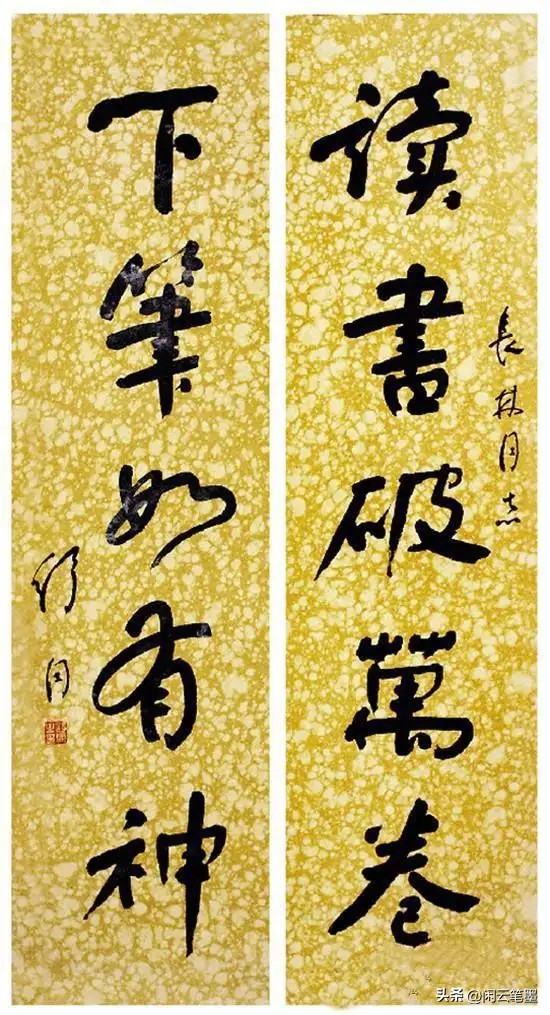 長林同志
读書破萬卷
下筆如有神
舒同
头条 @闲云笔墨